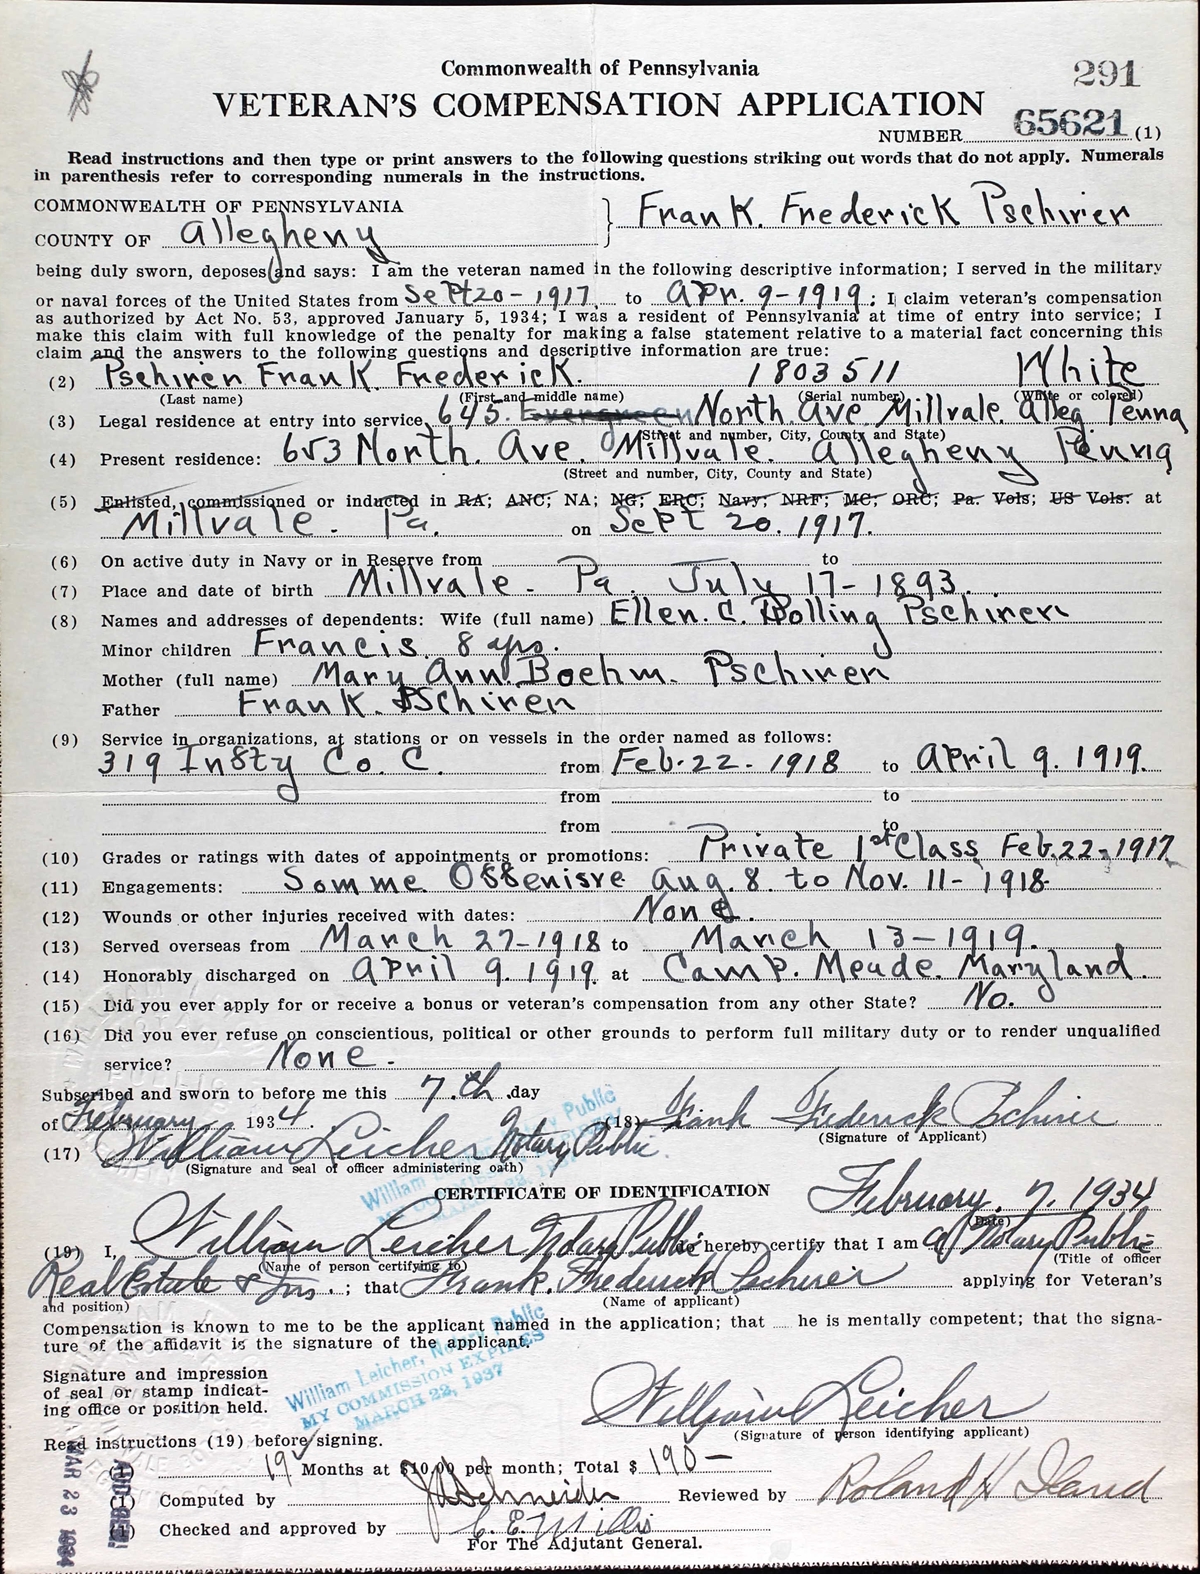 Commonwealth of Pennsylvania
291
VETERAN'S COMPENSATION APPLICATION
NUMBER 65621 (1)
Read instructions and then type or print answers to the following questions striking out words that do not apply. Numerals
in parenthesis refer to corresponding numerals in the instructions.
COMMONWEALTH OF PENNSYLVANIA
COUNTY OF Allegheny } Frank. Frederick Pschirer
being duly sworn, deposes and says: I am the veteran named in the following descriptive information; I served in the military
or naval forces of the United States from Sept 20-1917 to Apr. 9-1919; I claim veteran's compensation
as authorized by Act No. 53, approved January 5, 1934; I was a resident of Pennsylvania at time of entry into service; I
make this claim with full knowledge of the penalty for making a false statement relative to a material fact concerning this
claim and the answers to the following questions and descriptive information are true:
(2) Pschirer Frank Frederick. 1803511 White
(Last name) (First and middle name) (Serial number) (White or colored)
(3) Legal residence at entry into service 645. Evergreen North Ave Millvale. Alleg Penna
(Street and number, City, County and State)
(4) Present residence: 653 North. Ave. Millvale. Allegheny Penna
(Street and number, City, County and State)
(5) Enlisted, commissioned or inducted in RA; ANC; NA; NG; ERC; Navy; NRF; MC; ORC; Pa. Vols; US Vols: at
Millvale - Pa. on Sept 20. 1917.
(6) On active duty in Navy or in Reserve from to
(7) Place and date of birth Millvale - Pa. July 17-1893.
(8) Names and addresses of dependents: Wife (full name) Ellen. C. Bolling Pschirer
Minor children Francis 8 yrs.
Mother (full name) Mary Ann Boehm. Pschirer
Father Frank. Pschirer
(9) Service in organizations, at stations or on vessels in the order named as follows:
319 Infty Co. C. from Feb. 22 - 1918 to April 9. 1919.
from to
from to
(10) Grades or ratings with dates of appointments or promotions: Private 1st Class Feb. 22-1917
(11) Engagements: Somme Offenisve Aug. 8. to Nov. 11-1918
(12) Wounds or other injuries received with dates: None.
(13) Served overseas from March 27-1918 to March 13-1919.
(14) Honorably discharged on April 9. 1919. at Camp. Meade. Maryland.
(15) Did you ever apply for or receive a bonus or veteran's compensation from any other State? No.
(16) Did you ever refuse on conscientious, political or other grounds to perform full military duty or to render unqualified
service? None -
Subscribed and sworn to before me this 7.th day
of February 1934. (18) Frank Frederick Pschirer
(Signature of Applicant)
(17) William Leicher Notary Public.
(Signature and seal of officer administering oath)
William Leicher, Notary Public
MY COMMISSION EXPIRES
MARCH 22, 1937
CERTIFICATE OF IDENTIFICATION February. 7, 1934
(Date)
(19) I, William Leicher Notary Public do hereby certify that I am a Notary Public
(Name of person certifying to) (Title of officer
Real Estate & Ins.; that Frank. Frederick Pschirer applying for Veteran's
and position) (Name of applicant)
Compensation is known to me to be the applicant named in the application; that he is mentally competent; that the signa-
ture of the affidavit is the signature of the applicant.
Signature and impression
of seal or stamp indicat-
ing office or position held.
William Leicher, Notary Public
MY COMMISSION EXPIRES
MARCH 22, 1937
William Leicher
(Signature of person identifying applicant)
Read instructions (19) before signing.
(1) 19 Months at $10.00 per month; Total $ 190-
(1) Computed by Schneider Reviewed by Roland H
(1) Checked and approved by C. E. Mills
For The Adjutant General.
MAR 23 1934